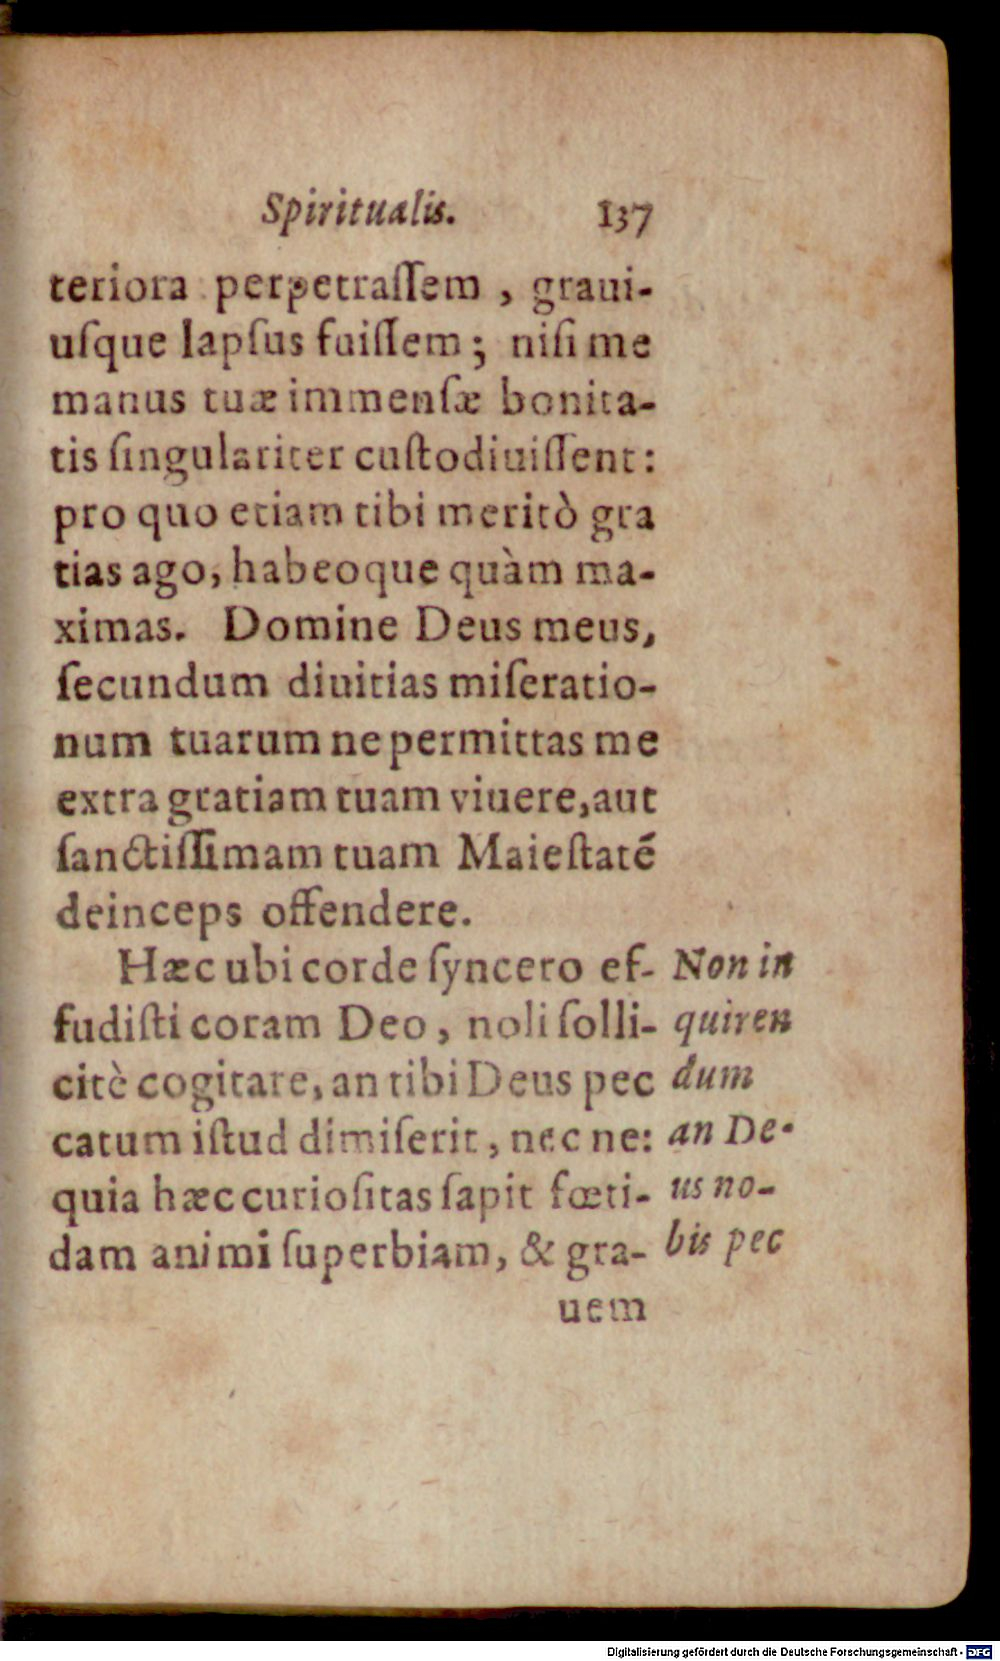 Spiritualis. 137
teriora perpetraſſem , graui-
uſque lapſus fuiſſem ; niſi me
manus tuæ immenſæ bonita-
tis ſingulariter cuſtodiuiſſent :
pro quo etiam tibi meritò gra
tias ago, habeoque quàm ma-
ximas. Domine Deus meus,
ſecundum diuitias miſeratio-
num tuarum ne permittas me
extra gratiam tuam viuere, aut
ſanctiſſimam tuam Maieſtatē
deinceps offendere.
Hæc ubi corde ſyncero ef-
fudiſti coram Deo , noli ſolli-
citè cogitare, an tibi Deus pec
catum iſtud dimiſerit , nec ne:
quia hæc curioſitas ſapit fœti-
dam animi ſuperbiam, & gra-
uem
Non in
quiren
dum
an De-
us no-
bis pec
Digitalisierung gefördert durch die Deutsche Forschungsgemeinschaft - DFG